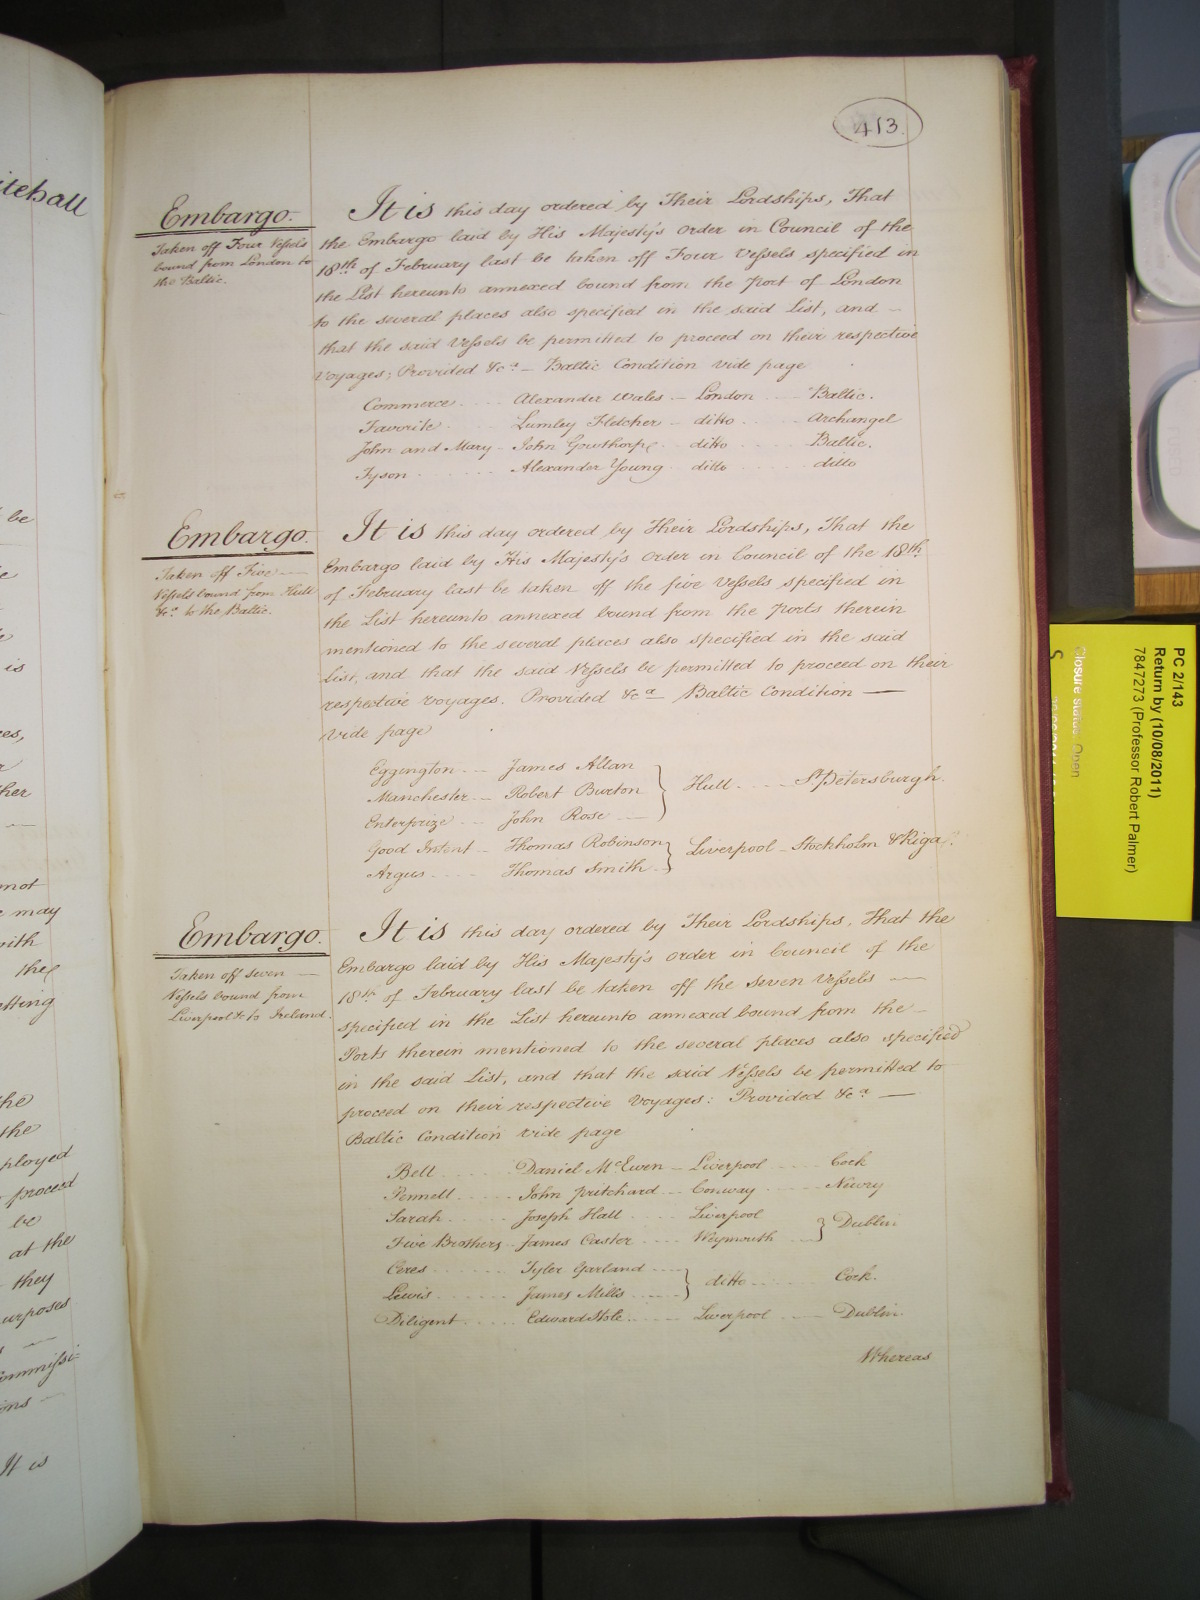 413.
Embargo.
Taken off Four Vessels
bound from London to
the Baltic.
It is this day ordered by Their Lordships, That
the Embargo laid by His Majesty's Order in Council of the
18th of February last be taken off Four Vessels specified in
the List hereunto annexed bound from the Port of London
to the several places also specified in the said List, and –
that the said Vessels be permitted to proceed on their respective
Voyages; Provided &ca – Baltic Condition vide page
Commerce Alexander Wales – London Baltic.
Favorite Lumley Fletcher – ditto Archangel
John and Mary – John Gowthorpe ditto Baltic.
Tyson Alexander Young ditto ditto
Embargo.
Taken off Five —
Vessels bound from Hull
&ca to the Baltic.
It is this day ordered by Their Lordships, That the
Embargo laid by His Majesty's Order in Council of the 18th
of February last be taken off the five Vessels specified in
the List hereunto annexed bound from the Ports therein
mentioned to the several places also specified in the said
List, and that the said Vessels be permitted to proceed on their
respective Voyages. Provided &ca Baltic Condition —
vide page
Eggington James Allan
Manchester Robert Burton } Hull St. Petersburgh.
Enterprize John Rose
Good Intent – Thomas Robinson } Liverpool – Stockholm & Riga.
Argus Thomas Smith
Embargo.
Taken off seven —
Vessels bound from
Liverpool &c to Ireland.
It is this day ordered by Their Lordships, That the
Embargo laid by His Majesty's Order in Council of the
18th of February last be taken off the seven Vessels –
specified in the List hereunto annexed bound from the –
Ports therein mentioned to the several places also specified
in the said List, and that the said Vessels be permitted to
proceed on their respective Voyages: Provided &ca —
Baltic Condition vide page
Bell Daniel McEwen – Liverpool Cork
Pennell John Pritchard Conway Newry
Sarah Joseph Hall Liverpool } Dublin
Five Brothers James Caster Weymouth
Ceres Tyler Garland } ditto Cork.
Lewis James Mills
Diligent Edward Liverpool Dublin
Whereas
itehall
be
is
es,
her
not
may
with
the
etting
the
the
ployed
proceed
be
at the
they
urposes
ommissi-
ons —
It is
PC 2/143
Return by (10/08/2011)
7847273 (Professor Robert Palmer)
Closure status: Open
S